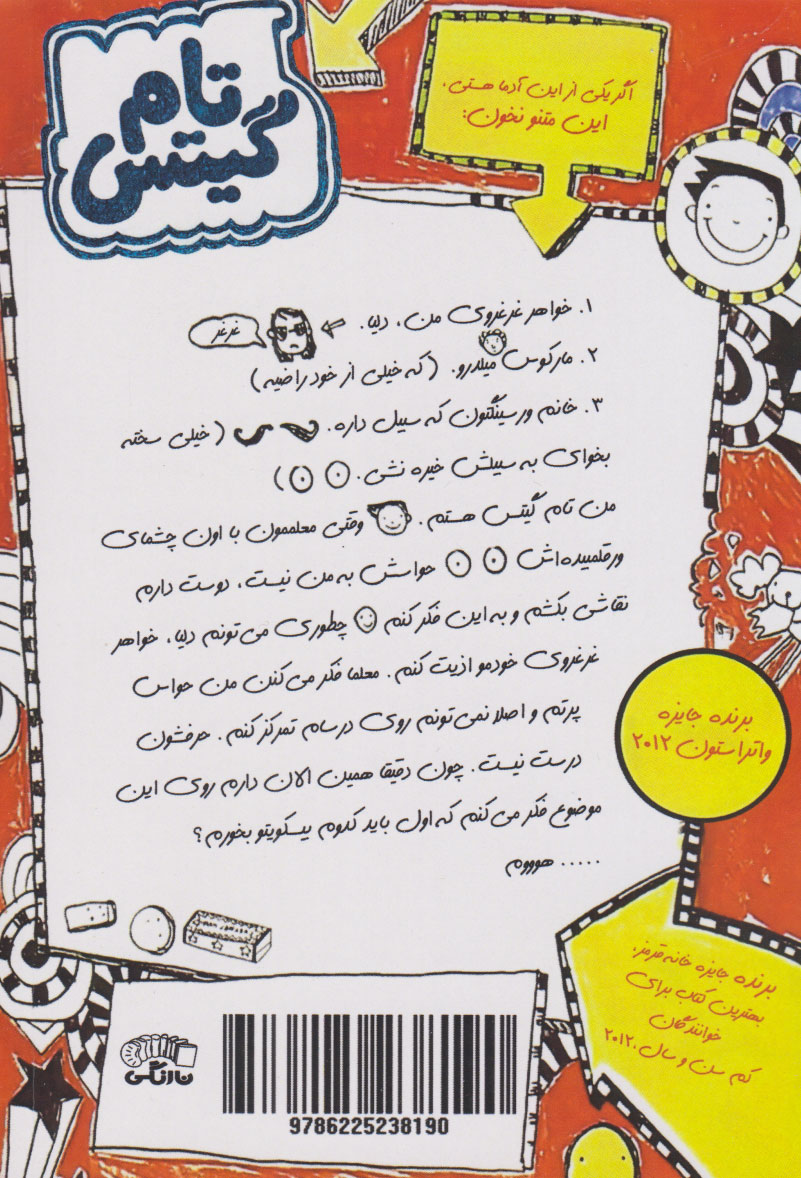 تام
گیتس
اگر یکی از این آدما هستی،
این متنو نخون:
۱. خواهر غرغروی من، دلیا.
غرغر
۲. مارکوس میلدرو. (که خیلی از خود راضیه)
۳. خانم ورسینگتون که سیبل داره. (خیلی سخته
بخوای به سیبلش خیره نشی.)
من تام گیتس هستم. وقتی معلممون با اون چشمای
ورقلمبیده‌اش حواسش به من نیست، دوست دارم
نقاشی بکشم و به این فکر کنم چطوری می‌تونم دلیا، خواهر
غرغروی خودمو اذیت کنم. معلما فکر می‌کنن من حواس
پرتم و اصلا نمی‌تونم روی درسام تمرکز کنم. حرفشون
درست نیست. چون دقیقا همین الان دارم روی این
موضوع فکر می‌کنم که اول باید کدوم بیسکویتو بخورم؟
..... هوووم
برنده جایزه
واتراستون ۲۰۱۲
برنده جایزه خانه قرمز،
بهترین کتاب برای
خوانندگان
کم سن و سال، ۲۰۱۲
نارنگی
9786225238190